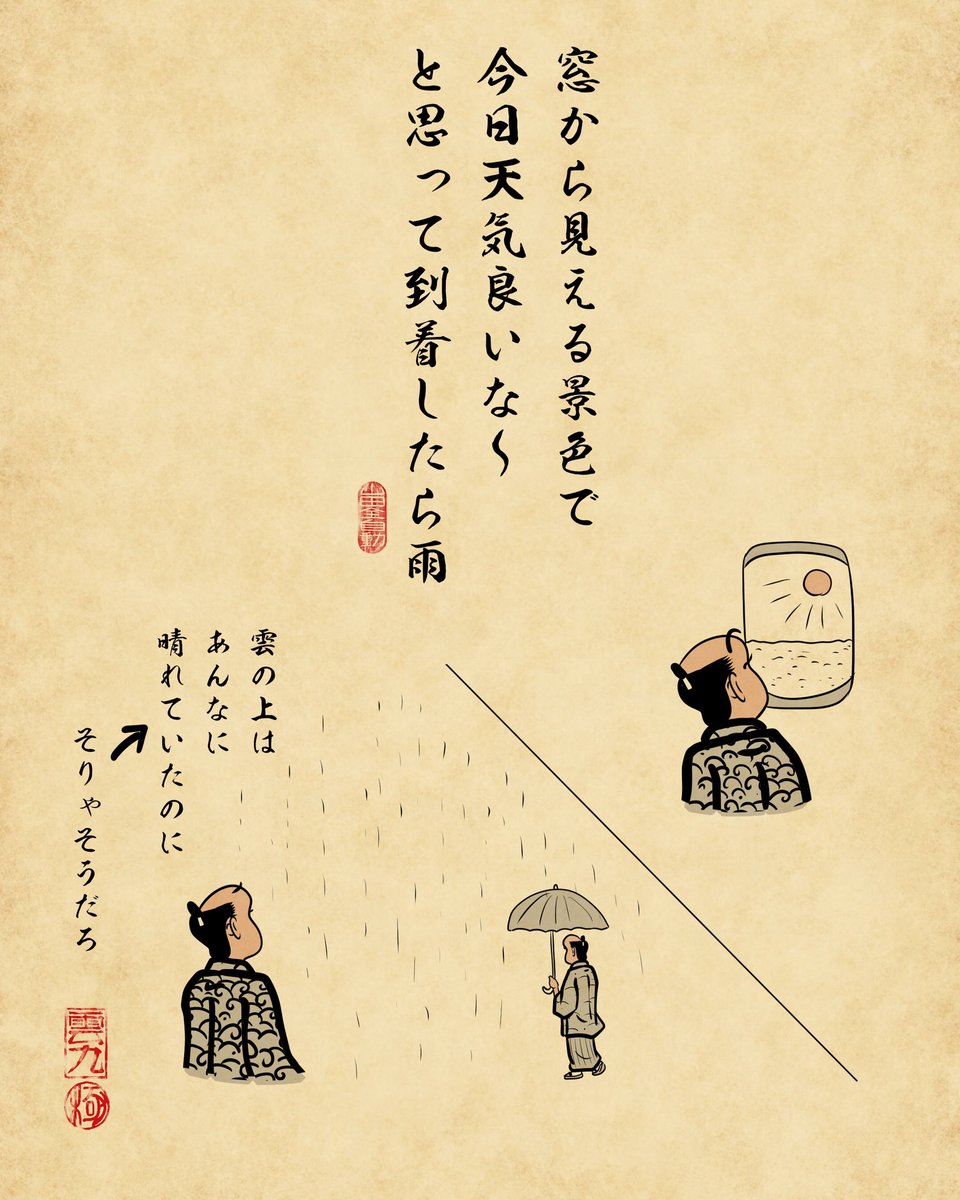 窓から見える景色で
今日天気良いな〜
と思って到着したら雨
雲の上は
あんなに
晴れていたのに
そりゃそうだろ